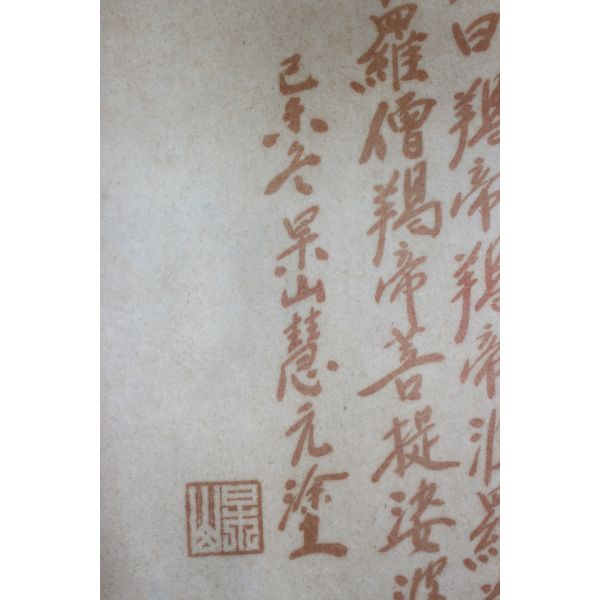 曰羯帝羯帝波羅
羅僧羯帝菩提娑婆
己未冬杲山慧元塗
杲山